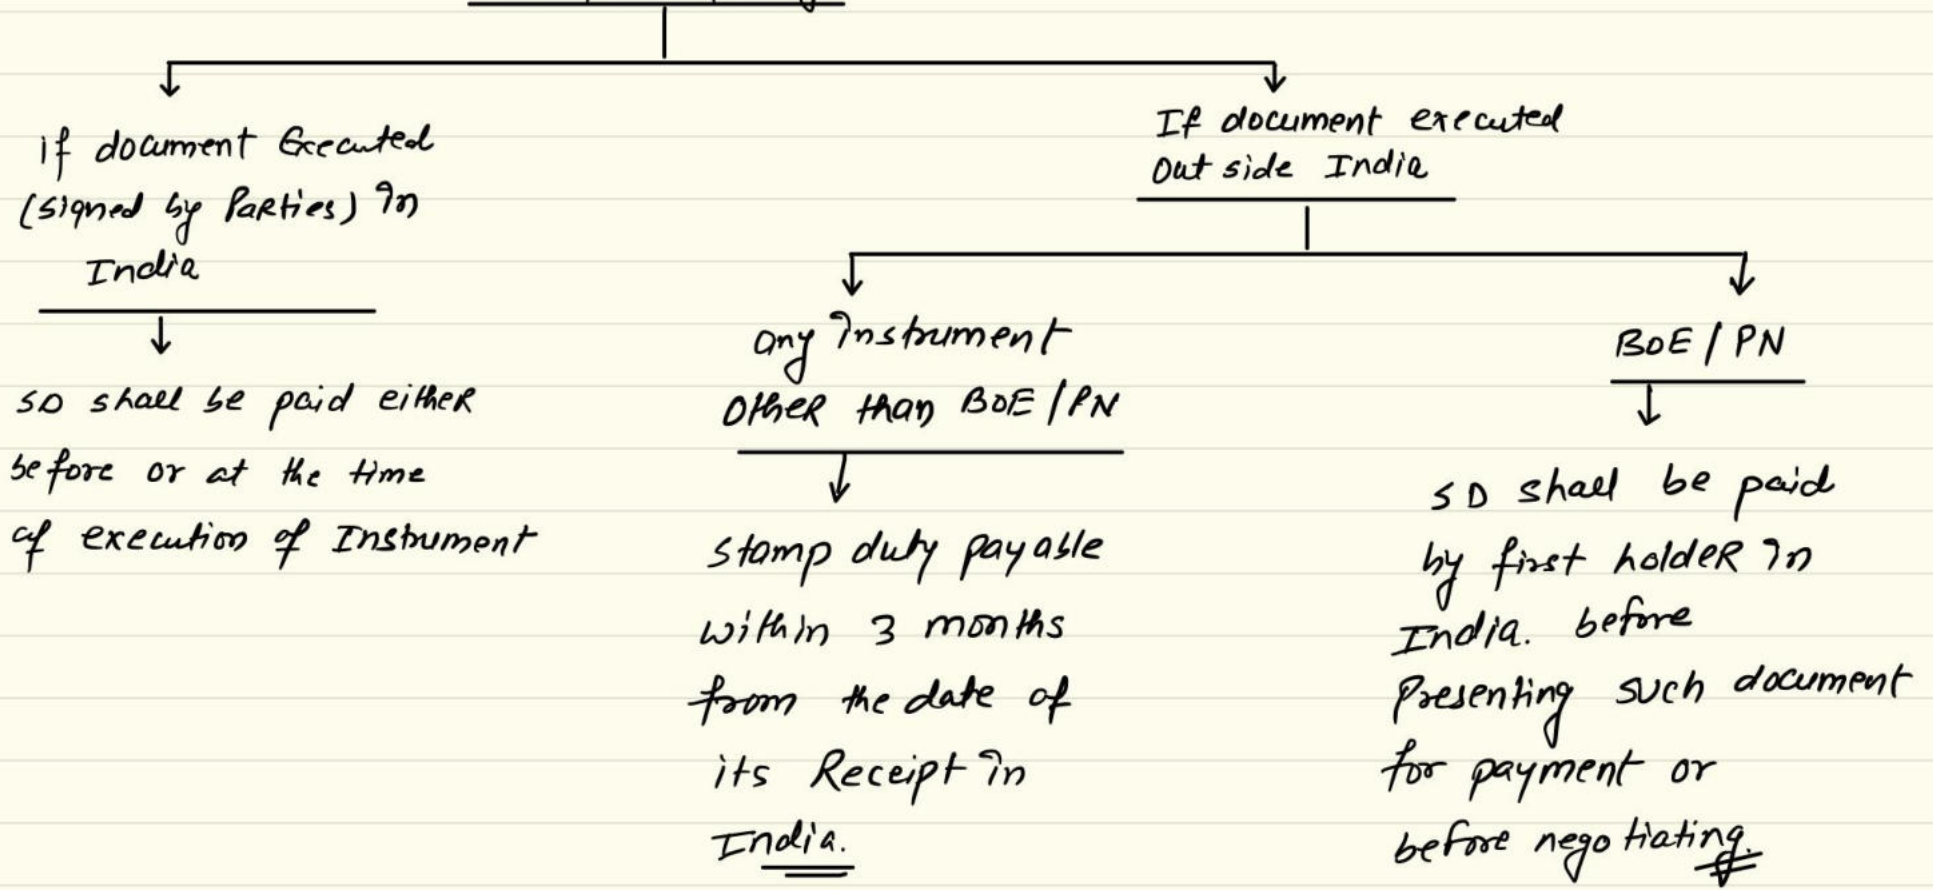 if document Executed
(signed by Parties) in
India
SD shall be paid either
before or at the time
of execution of Instrument
If document executed
Out side India
any instrument
Other than BOE/PN
stamp duty payable
within 3 months
from the date of
its Receipt in
India.
BOE/PN
SD shall be paid
by first holder in
India. before
Presenting such document
for payment or
before negotiating.